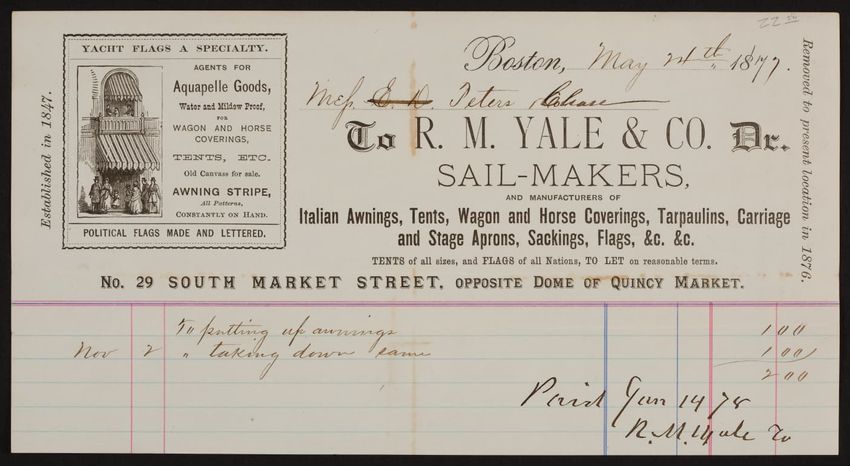 22 50
Boston, May 24th 1877.
Mess E. D. Peters Chase
To R. M. YALE & CO. Dr.
SAIL-MAKERS,
AND MANUFACTURERS OF
Italian Awnings, Tents, Wagon and Horse Coverings, Tarpaulins, Carriage
and Stage Aprons, Sackings, Flags, &c. &c.
TENTS of all sizes, and FLAGS of all Nations, TO LET on reasonable terms.
No. 29 SOUTH MARKET STREET, OPPOSITE DOME OF QUINCY MARKET.
Established in 1847.
YACHT FLAGS A SPECIALTY.
AGENTS FOR
Aquapelle Goods,
Water and Mildew Proof,
FOR
WAGON AND HORSE
COVERINGS,
TENTS, ETC.
Old Canvass for sale.
AWNING STRIPE,
All Patterns,
CONSTANTLY ON HAND.
POLITICAL FLAGS MADE AND LETTERED.
Removed to present location in 1876.
To putting up awnings 1 00
Nov 2 " taking down same 1 00
2 00
Paid Jan 14 78
R. M. Yale Co